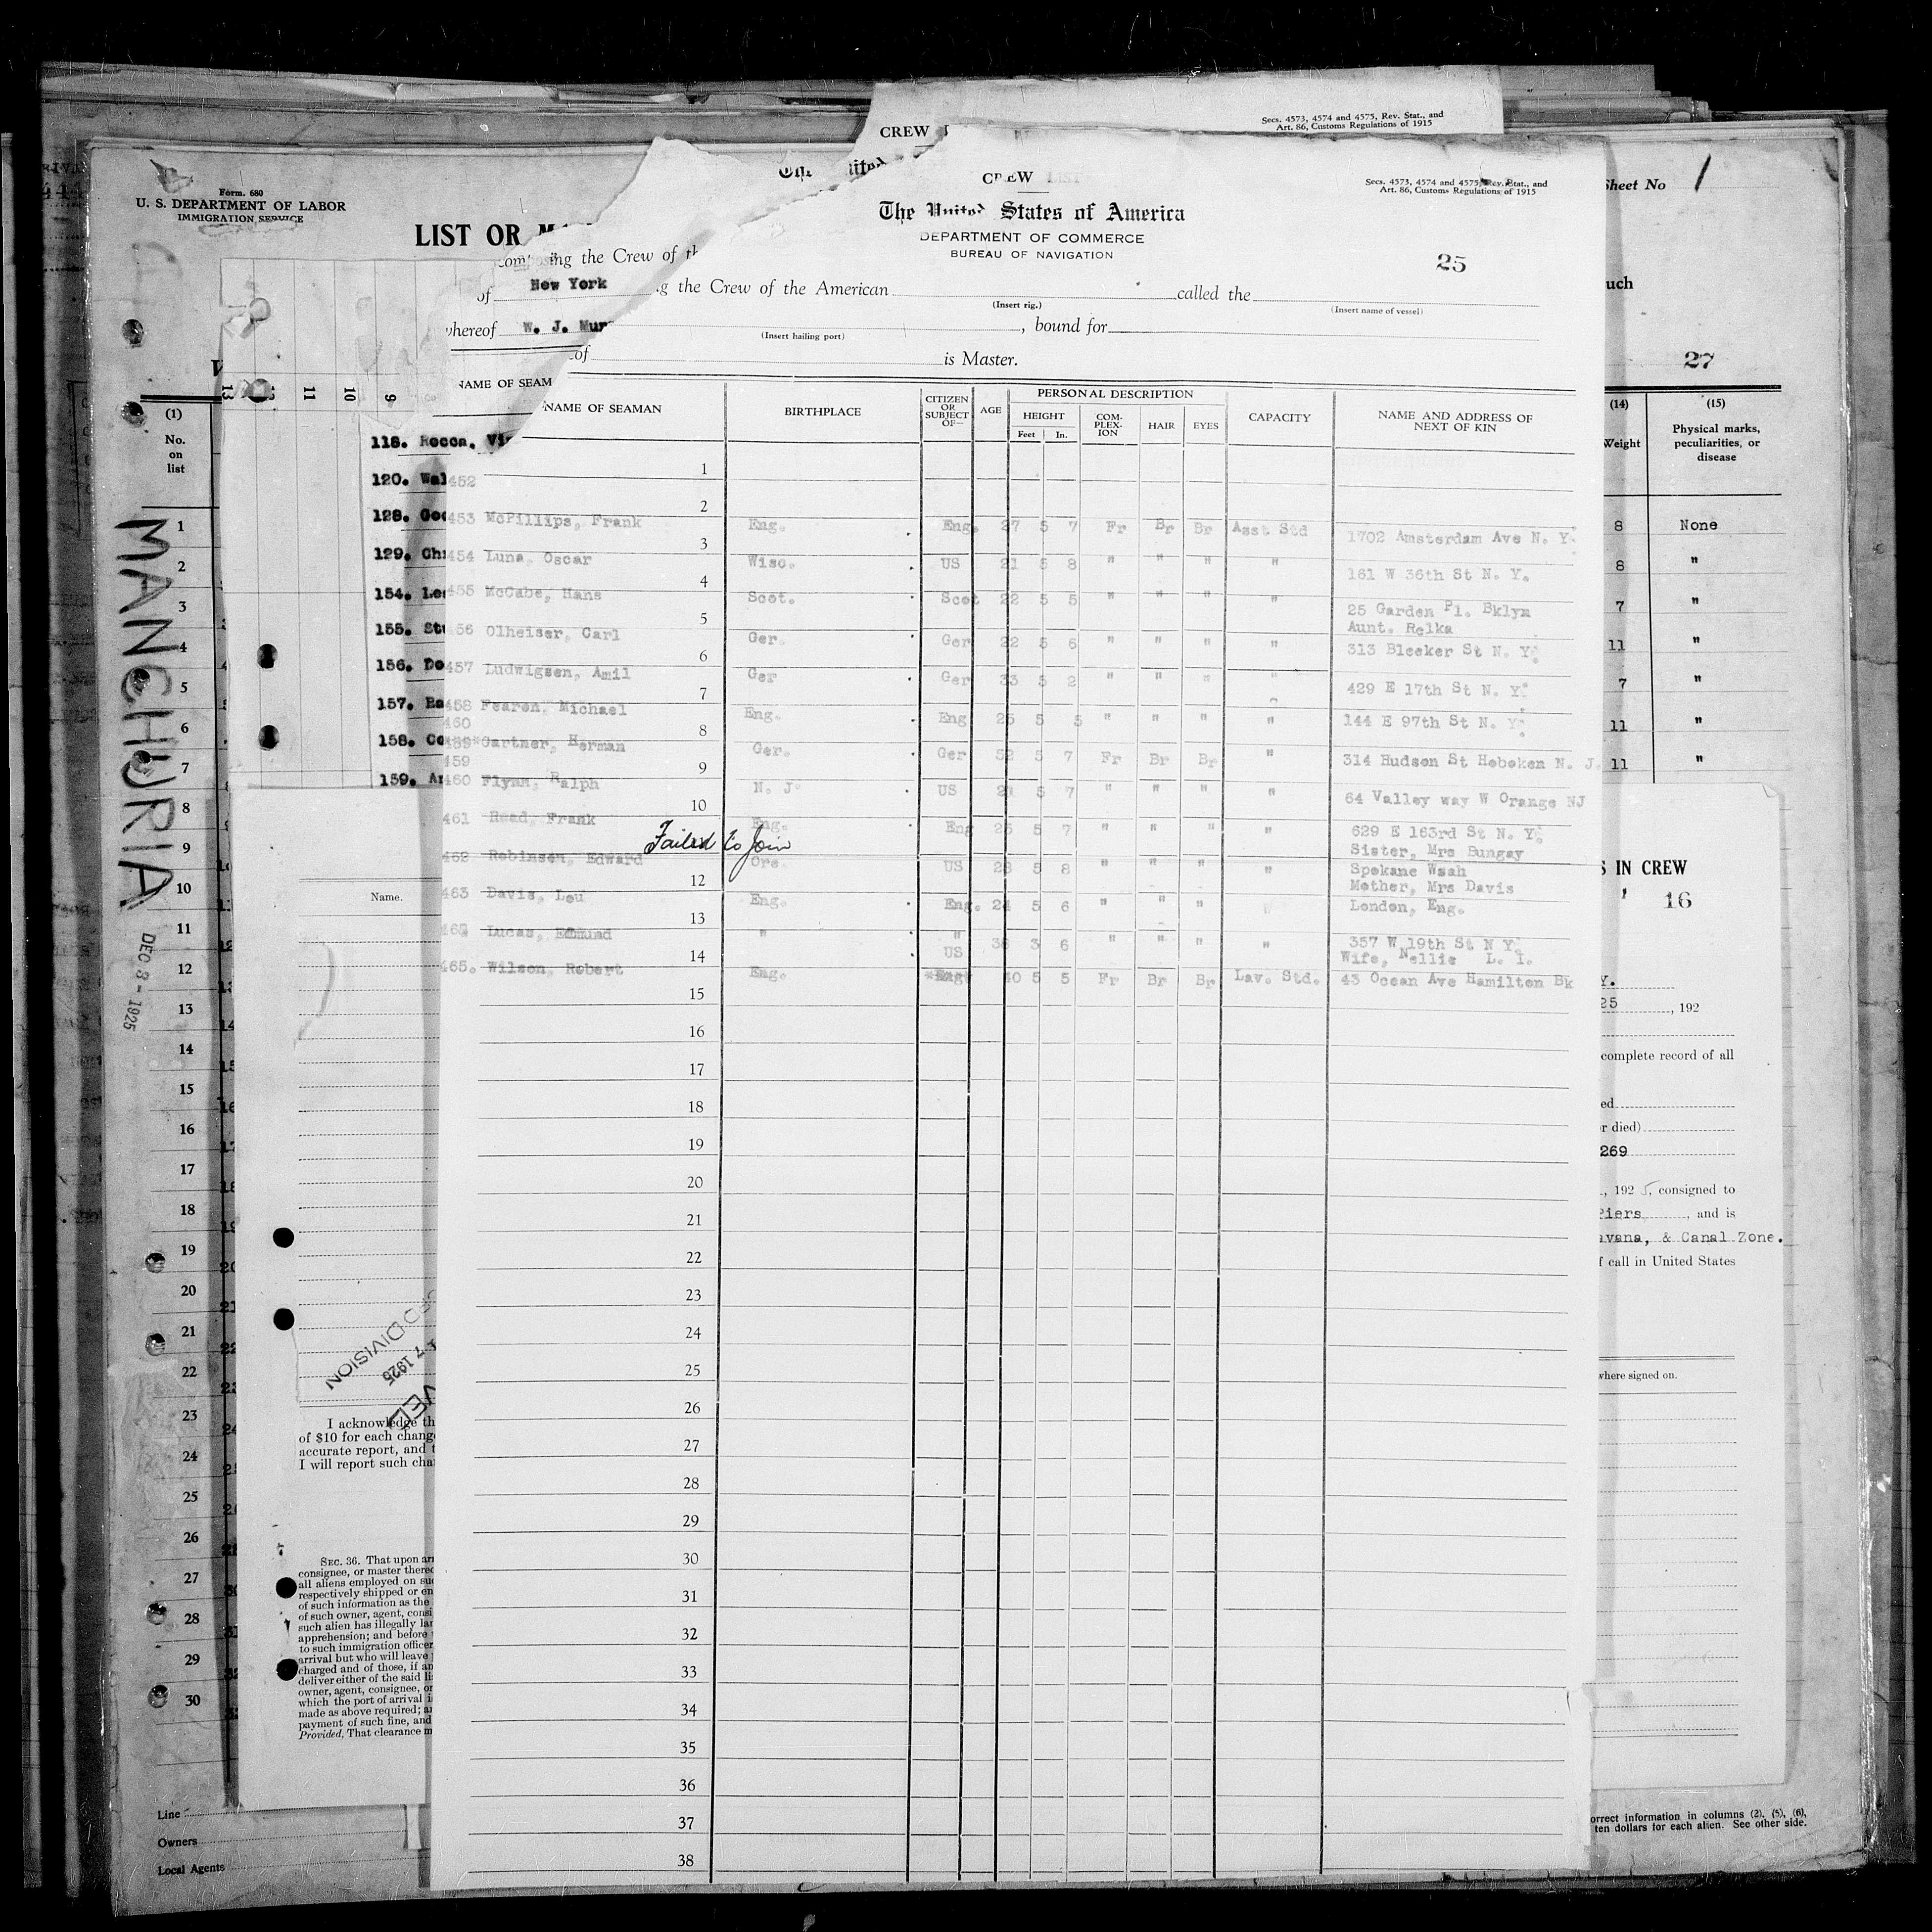 Secs. 4573, 4574 and 4575, Rev. Stat., and
Art. 86, Customs Regulations of 1915
CREW
Form. 680
U. S. DEPARTMENT OF LABOR
IMMIGRATION SERVICE
LIST OR
Sheet No 1
CREW LIST
Secs. 4573, 4574 and 4575, Rev. Stat., and
Art. 86, Customs Regulations of 1915
The United States of America
DEPARTMENT OF COMMERCE
BUREAU OF NAVIGATION
25
composing the Crew of th
of New York
g the Crew of the American called the
(Insert rig.) (Insert name of vessel)
whereof W. J. Mur
, bound for
(Insert hailing port)
of is Master.
27
NAME OF SEAM
NAME OF SEAMAN BIRTHPLACE CITIZEN OR SUBJECT OF— AGE PERSONAL DESCRIPTION CAPACITY NAME AND ADDRESS OF NEXT OF KIN
HEIGHT Feet In. COMPLEXION HAIR EYES
(1) No. on list
(14) Weight
(15) Physical marks, peculiarities, or disease
13 12 11 10 9
118. Rocca, Vi
120. Wal
128. Goo
129. Ch
154. Le
155. St
156. Do
157. Ba
158. Co
159. A
1
452
2
453 McPillips, Frank Eng. Eng. 27 5 7 Fr Br Br Asst Std 1702 Amsterdam Ave N. Y.
3
454 Luna, Oscar Wisc. US 21 5 8 " " " " 161 W 36th St N. Y.
4
455 McCabe, Hans Scot. Scot 22 5 5 " " " " 25 Garden Pl. Bklyn
5
Aunt. Relka
456 Olheiser, Carl Ger. Ger 22 5 6 " " " " 313 Bleeker St N. Y.
6
457 Ludwigsen, Amil Ger Ger 33 5 2 " " " " 429 E 17th St N. Y.
7
458 Fearon, Michael Eng. Eng 25 5 5 " " " " 144 E 97th St N. Y.
8
460
Gartner, Herman Ger. Ger 52 5 7 Fr Br Br " 314 Hudson St Hoboken N. J.
9
459
460 Flynn, Ralph N. J. US 21 5 7 " " " " 64 Valley way W Orange NJ
10
461 Read, Frank Eng. Eng 25 5 7 " " " " 629 E 163rd St N. Y.
Failed to Join
Sister, Mrs Bungay
462 Robinson, Edward Ore. US 28 5 8 " " " " Spokane Wsah
12
Mother, Mrs Davis
463 Davis, Lou Eng. Eng. 24 5 6 " " " London, Eng.
13
Lucas, Edmund " " US 38 3 6 " " " " 357 W 19th St N Y.
14
Wife, Nellie L. I.
465. Wilson, Robert Eng. 40 5 5 Fr Br Br Lav. Std. 43 Ocean Ave Hamilton Bk
15
16
17
18
19
20
21
22
23
24
25
26
27
28
29
30
31
32
33
34
35
36
37
38
MANCHURIA
DEC 8 - 1925
1
2
3
4
5
6
7
8
9
10
11
12
13
14
15
16
17
18
19
20
21
22
23
24
25
26
27
28
29
30
8 None
8 "
7 "
11 "
7 "
11 "
11 "
Name.
S IN CREW
16
Y.
25, 192
complete record of all
ed
r died)
269
, 1925, consigned to
Piers, and is
avana, & Canal Zone.
f call in United States
where signed on.
DIVISION
7 1925
I acknowledge th
of $10 for each change
accurate report, and t
I will report such cha
SEC. 36. That upon arr
consignee, or master thereo
all aliens employed on suc
respectively shipped or en
of such information as the
of such owner, agent, consi
such alien has illegally lan
apprehension; and before
to such immigration officer
arrival but who will leave
charged and of those, if an
deliver either of the said li
owner, agent, consignee, or
which the port of arrival i
made as above required; a
payment of such fine, and
Provided, That clearance m
Line
Owners
Local Agents
orrect information in columns (2), (5), (6),
ten dollars for each alien. See other side.